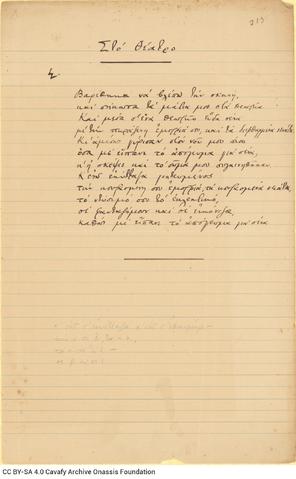 Στό Θέατρο
Βαρέθηκα νά βλέπω τήν σκηνή,
καί σήκωσα τά μάτια μου στά θεωρεία.
Καί μέσα σ' ένα θεωρείο είδα σένα
μέ τήν παράξενη εμορφιά σου, καί τά διεφθαρμένα νιάτα.
Κι αμέσως γύρισαν στόν νού μου πίσω
όσα μέ είπανε τό απόγευμα γιά σένα,
κ' η σκέψις καί τό σώμα μου συγκινηθήκαν.
Κ' ενώ εκύτταζα γοητευμένος
τήν κουρασμένη σου εμορφιά, τά κουρασμένα νιάτα,
τό ντύσιμό σου τό εκλεκτικό,
σέ φανταζόμουν καί σέ εικόνιζα,
καθώς μέ είπαν τό απόγευμα γιά σένα
CC BY-SA 4.0 Cavafy Archive Onassis Foundation